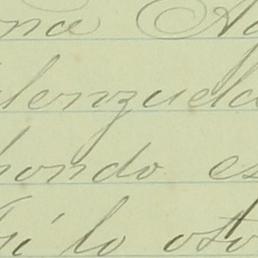 na A
lenzuela
hondo es
sí lo oto